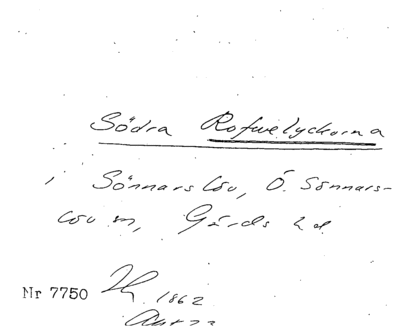 Södra Rofwelyckorna
i Sönnarslöv, Ö. Sönnars-
löv sn, Gärds hd
Nr 7750 1862